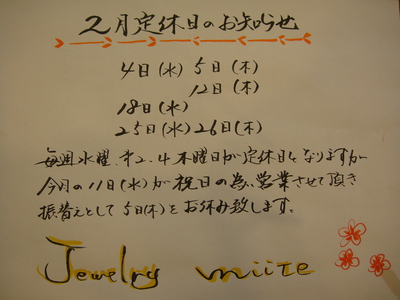 2月定休日のお知らせ
4日(水) 5日(木)
12日(木)
18日(水)
25日(水) 26日(木)
毎週水曜、第2.4木曜日が定休日となりますが
今月の11日(水)が祝日の為、営業させて頂き
振替えとして5日(木)をお休み致します。
Jewelry miite